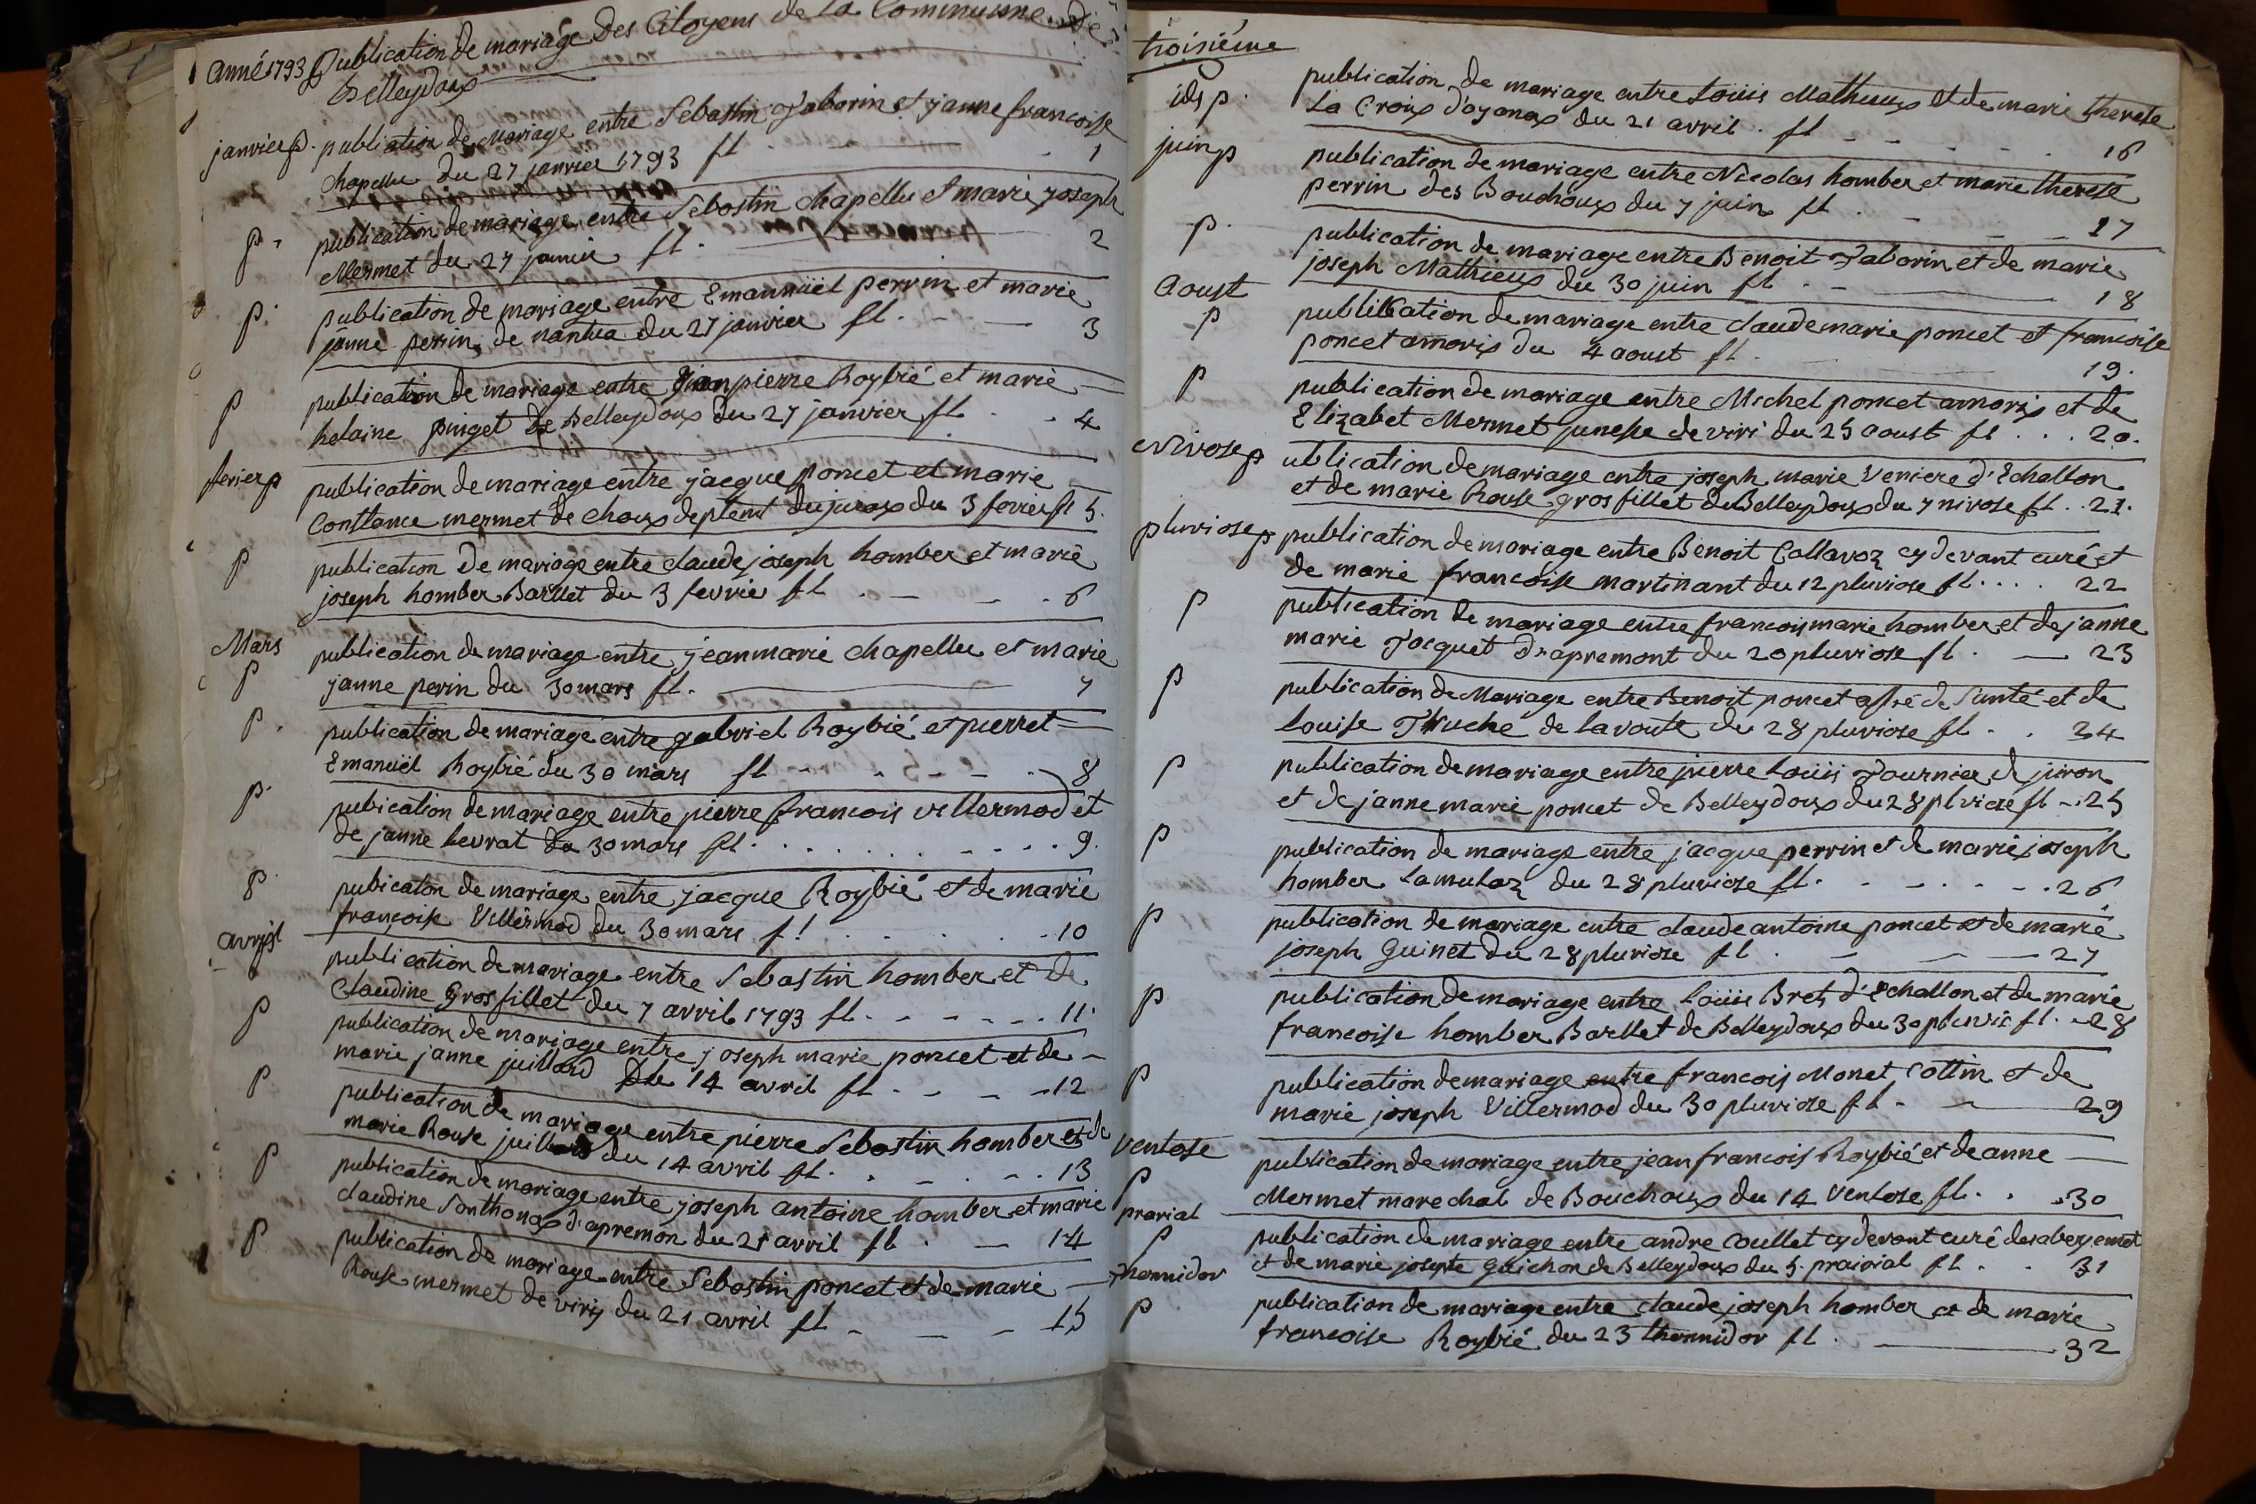 anné 1793 publication de mariage des Citoyens de la Commune de
Belleydoux
janvier p. publication de Mariage entre Sebastin Taborin et janne francoise
chapellu du 27 janvier 1793 fl - 1
p. publication de mariage entre Sebostin chapellu et marie joseph
Mermet du 27 janvier fl. 2
p. publication de mariage entre Emannüel perrin et marie
janne perrin de nantua du 27 janvier fl. - 3
p publication de mariage entre jean pierre Roybié et marie
helaine puiget de Belleydoux du 27 janvier fl - 4
fevrier p publication de mariage entre jacque poncet et marie
Constance mermet de choux deptemt du jurax du 3 fevrier fl 5.
p publication de mariage entre claude joseph homber et marie
joseph homber Barllet du 3 fevrie fl . - - . 6
Mars publication de mariage entre jean marie chapellu et marie
p janne perin du 30 mars fl. 7
p. publication de mariage entre gabriel Roybié et pierret =
Emanuël Roybié du 30 mars fl - . - - . 8
p. pubication de mariage entre pierre francois villermod et
de janne levrat du 30 mars fl . . . . . . . . 9.
p pubicaton de mariage entre jacque Roybié et de marie
françoise Villermod du 30 mars fl . . . . 10
avrisl publication de mariage entre Sebastin homber et de
Claudine Grosfillet du 7 avril 1793 fl . - - - - . 11.
p publication de mariage entre joseph marie poncet et de -
marie janne juilland Du 14 avril fl - - - - 12
p publication de mariage entre pierre Sebostin homber et de
marie Rouse juilland du 14 avril fl. . - . - . 13
p publication de mariage entre joseph antoine homber et marie
claudine Sonthonax d'apremon du 21 avril fl . - 14
p publication de mariage entre Sebostin poncet et de marie
Rouse mermet de viry du 21 avril fl - - - 15
troisiéme
ids p. publication de mariage entre Loüis Mathieux et de marie therese
La Croix d'oyonax du 21 avril . fl - - . - . 16
juin p publication de mariage entre Nicolas homber et marie therese
perrin des Bouchoux du 7 juin fl . - - - 17
p. publication de mariage entre Benoit Taborin et de marie
joseph Mathieux du 30 juin fl . - 18
Aoust publication de mariage entre claude marie poncet et françoise
p poncet amorix du 4 aoust fl . 19.
p publication de mariage entre Michel poncet amorix et de
Elizabet Mermet junesse de viri du 25 aoust fl . . . 20.
Nivose p ublication de mariage entre joseph marie Veniere d'Echallon
et de marie Rouse grosfillet de Belleydoux du 7 nivose fl . . 21.
pluviose p publication de mariage entre Benoit Collavoz cy devant curé et
de marie francoise martinant du 12 pluviose fl . . . . 22
p publication de mariage entre francois marie homber et de janne
marie Jocquet d'apremont du 20 pluviose fl . - 23
p publication de Mariage entre Benoit poncet offié de Santé et de
Louise Truche de lavoute du 28 pluviose fl . . 24
p publication de mariage entre pierre Loüis Tournier de jiron
et de janne marie poncet de Belleydoux du 28 plviose fl - . 25
p publication de mariage entre jacque perrin et de marie joseph
homber Lamulaz du 28 pluviose fl . - - . - - . 26
p publication de mariage entre claude antoine poncet et de marie
joseph Guinet du 28 pluviose fl . - - - 27
p publication de mariage entre Loüis Bret d'Echallon et de marie
francoise homber Barllet de Belleydoux du 30 pluvie fl . - 28
p publication de mariage entre francois Monet Cottin et de
marie joseph Villermod du 30 pluviose fl - - 29
Ventose publication de mariage entre jean francois Roybié et de anne
p Mermet marechal de Bouchoux du 14 Ventose fl . . . 30
prarial publication de mariage entre andre Coullet cy devant curé desabergemet
p et de marie josepte Guichon de Belleydoux du 5. prairial fl . . 31
Thermidor publication de mariage entre claude joseph homber et de marie
p francoise Roybié du 23 thermidor fl . 32